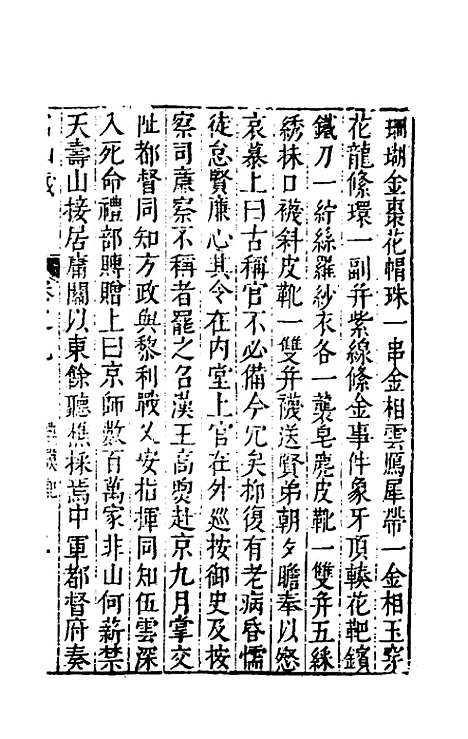 珊瑚金棗花帽珠一串金相雲鴈犀帶一金相玉穿
花龍絛環一副并紫線絛金事件象牙頂轃花靶鑌
鐵刀一紵絲羅紗衣各一襲皂麂皮靴一雙并五綵
綉抹口襪斜皮靴一雙并襪送賢弟朝夕瞻奉以慰
哀慕上曰古稱官不必備今冗矣抑復有老病昏懦
徒怠賢廉心其令在内堂上官在外巡按御史及按
察司廉察不稱者罷之召漢王高煦赴京九月掌交
阯都督同知方政與黎利戰乂安指揮同知伍雲深
入死命禮部賻贈上曰京師數百萬家非山何薪禁
天壽山接居庸關以東餘聽樵採焉中軍都督府奏
名山藏
卷之九